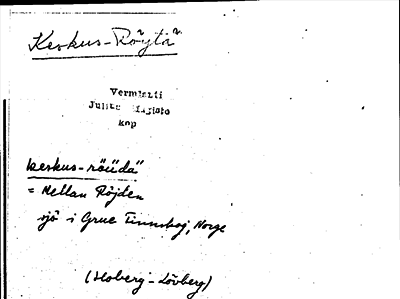 Keskus-Röytä
Vermlanti
Julius Mägiste
kop
keskus-röüdä"
= Mellan Röjden
sjö i Grue Finnskog, Norge
(Moberg - Lövberg)